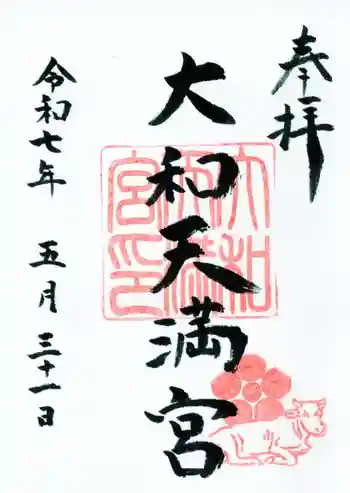 奉拝
大和天満宮
大和天満宮印
令和七年 五月三十一日